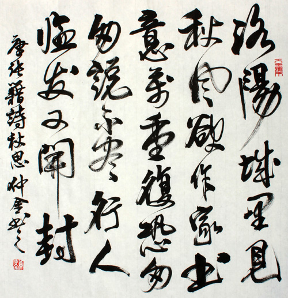 洛陽城里見
秋風欲作家書
意萬重復恐匆
匆說不盡行人
臨發又開封
唐張籍詩秋思